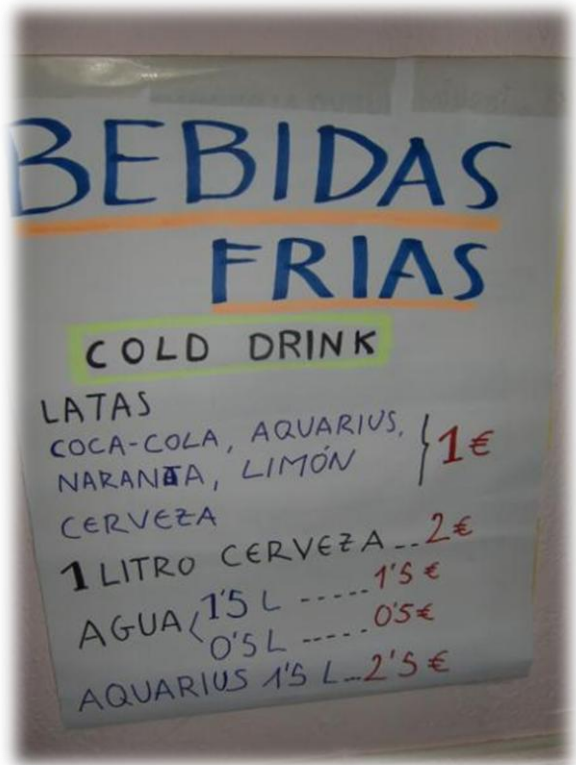 BEBIDAS
FRIAS
COLD DRINK
LATAS
COCA-COLA, AQUARIUS,
NARANJA, LIMÓN } 1€
CERVEZA
1 LITRO CERVEZA...2€
AGUA < 1'5 L ----- 1'5 €
0'5 L ----- 0'5€
AQUARIUS 1'5 L...2'5 €